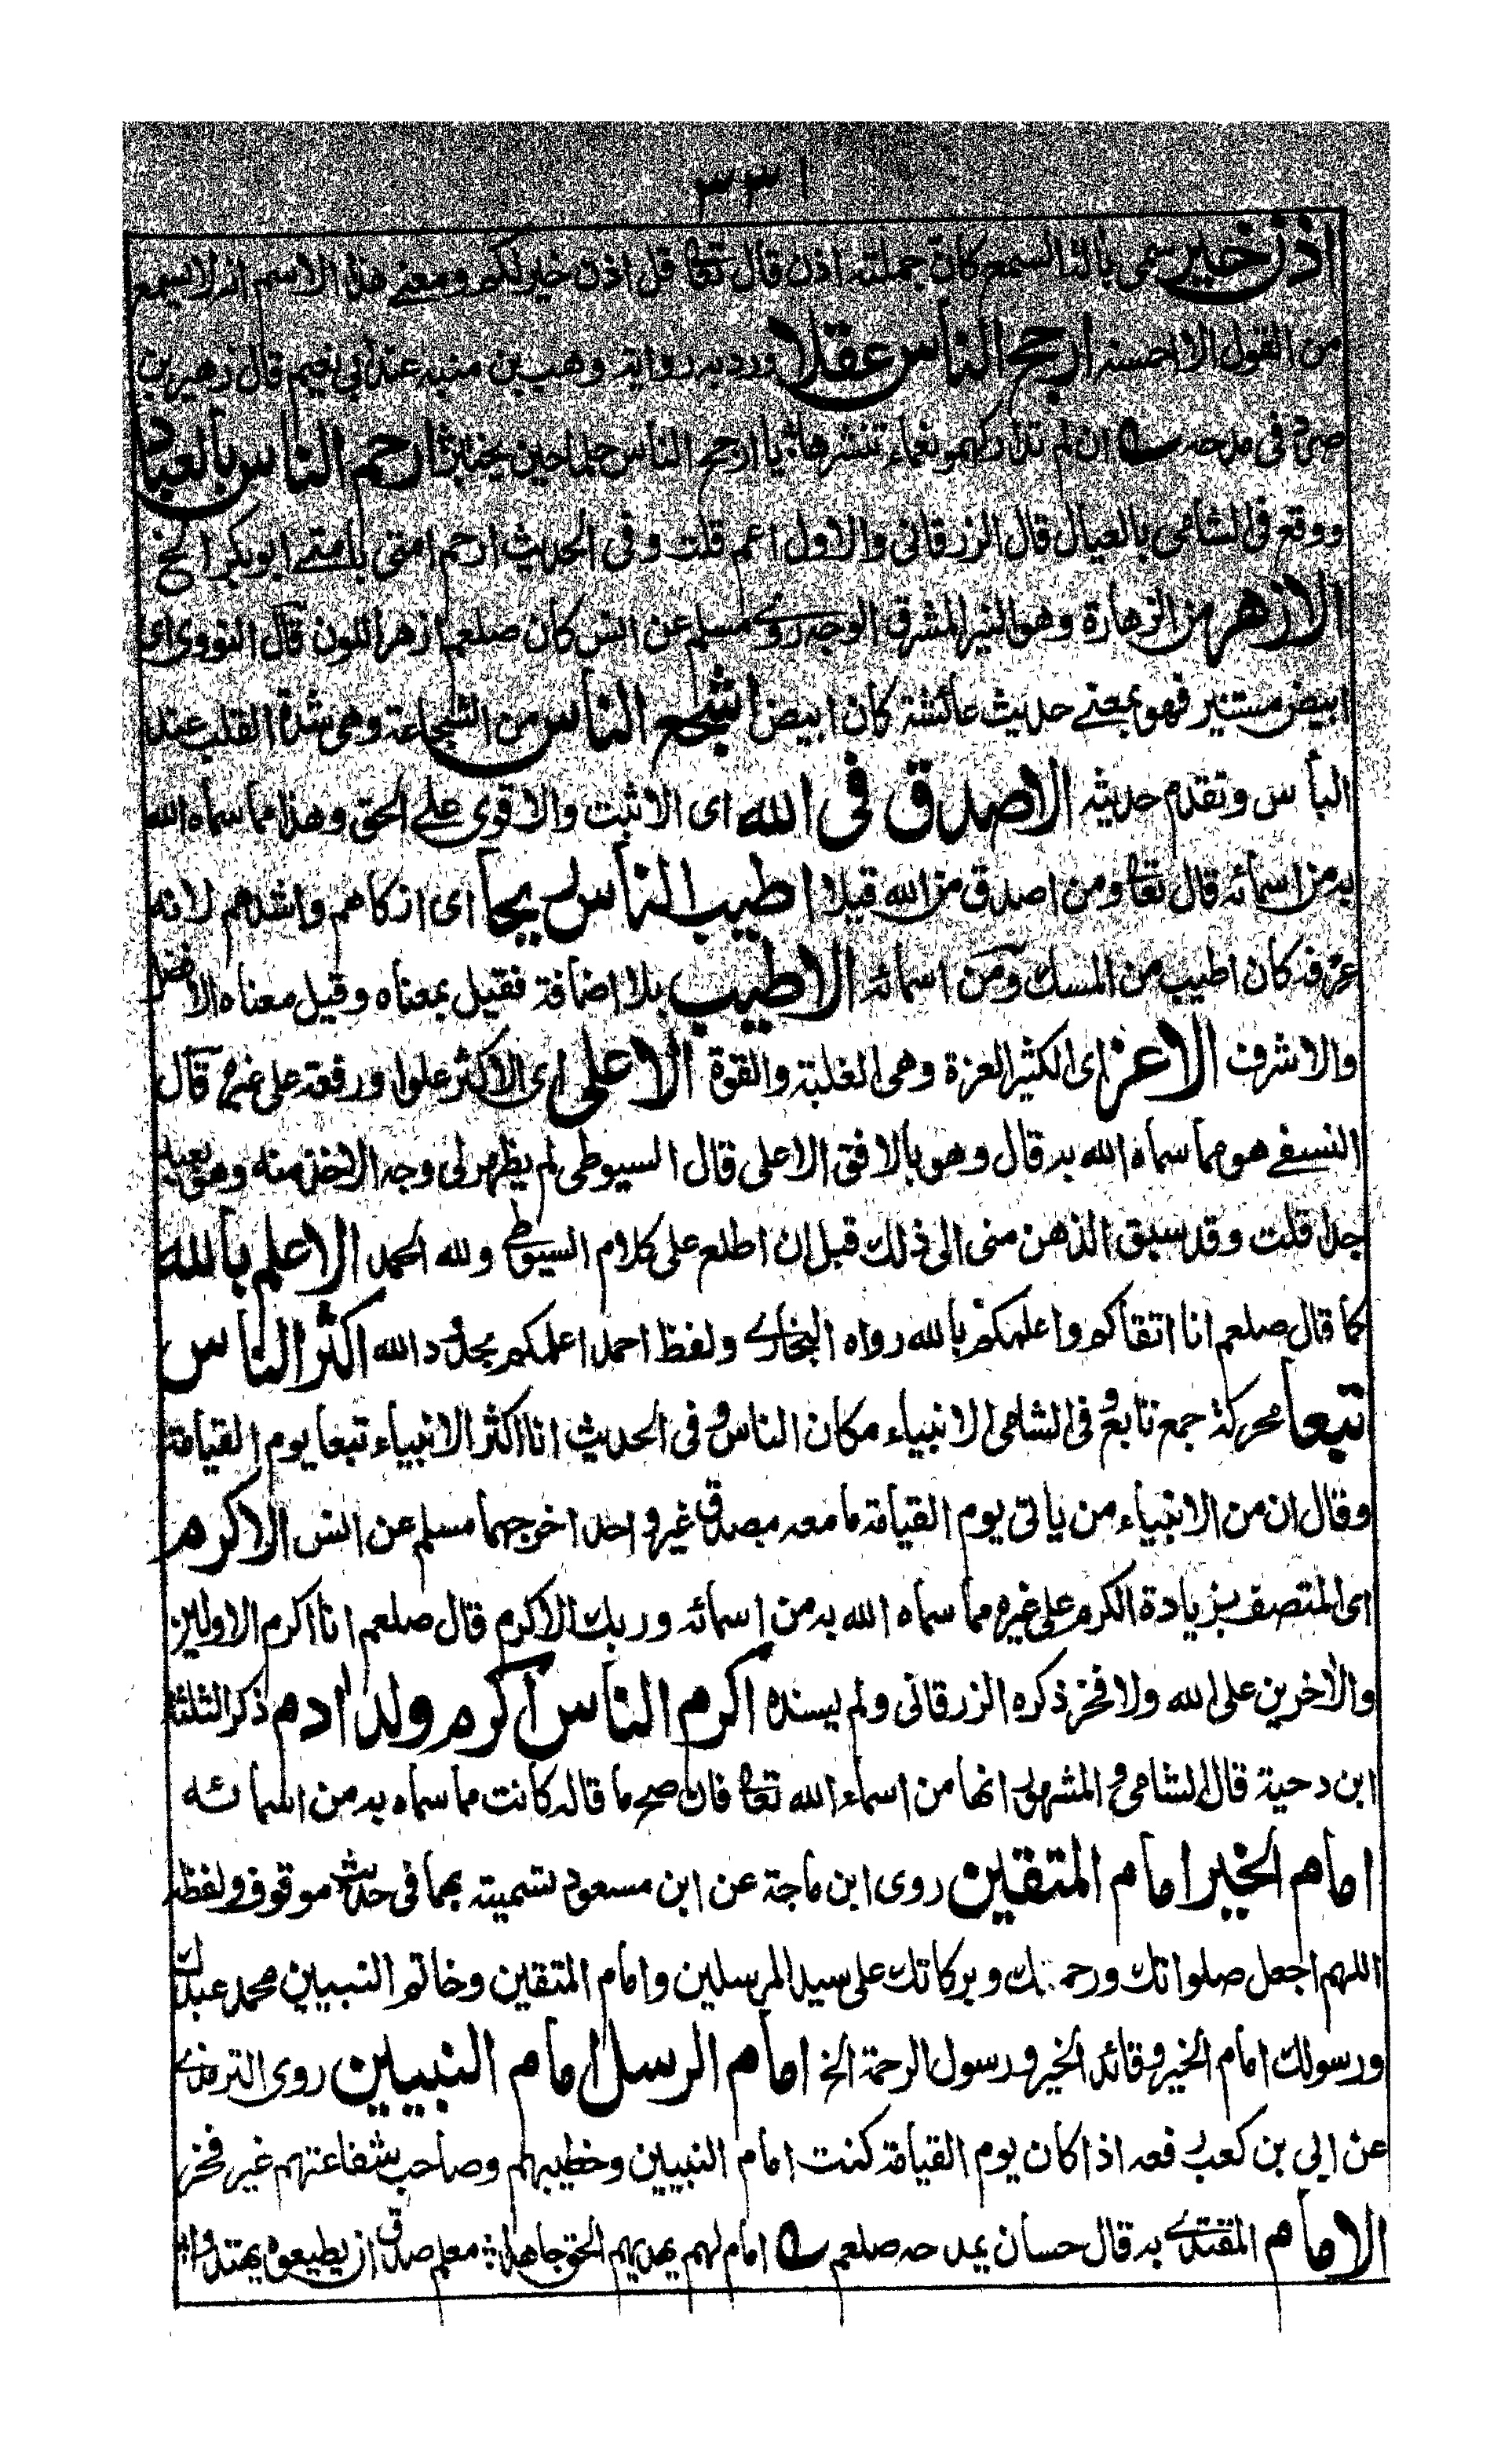 ١٣٣
اذن خير سمى بالذا السمع كان جملته اذن قال تعا قل اذن خير لكم ومعنے هذا الاسم انه لا يسمع
من القول الا احسنه ارجح الناس عقلا ورد به رواية وهب بن منبه عند ابى نعيم قال زهير بن
صرد فى مدحه ان لم تداركهم نعماء تنشرها يا ارجح الناس حلما حين يختبر ارحم الناس بالعباد
ووقع فى الشامى بالعيال قال الزرقانى والاول اعم قلت وفى الحديث ارحم امتى بامتے ابو بكر الخ
الازهر من الزهارة وهو النير المشرق الوجه روے مسلم عن انس كان صلعم ازهر اللون قال النووى اى
ابيض مستنير فهو بمعنے حديث عائشة كان ابيض اشجع الناس من الشجاعة وهى شدة القلب عند
البأس وتقدم حديثه الاصدق فى الله اى الاثبت والاقوى علے الحق وهذا مما سماه الله
به من اسمائه قال تعا ومن اصدق من الله قيلا اطيب الناس ريحا اى ازكاهم واشدهم لانه
عرفه كان اطيب من المسك ومن اسمائه الاطيب بلا اضافة فقيل بمعناه وقيل معناه الافضل
والاشرف الاعز اى الكثير العزة وهى الغلبة والقوة الاعلى اى الاكثر علوا ورفعة على غيره قال
النسفے هو مما سماه الله به قال وهو بالافق الاعلى قال السيوطى لم يظهر لى وجه الاخذ منه وهو بعيد
جدا قلت وقد سبق الذهن منى الى ذلك قبل ان اطلع على كلام السيوطے ولله الحمد الاعلم بالله
كما قال صلعم انا اتقاكم واعلمكم بالله رواه البخارے ولفظ احمد اعلمكم بحدود الله اكثر الناس
تبعا محركة جمع تابع وفى الشامى الانبياء مكان الناس وفى الحديث انا اكثر الانبياء تبعا يوم القيامة
وقال ان من الانبياء من ياتى يوم القيامة ما معه مصدق غير واحد اخرجهما مسلم عن انس الاكرم
اى المتصف بزيادة الكرم على غيره مما سماه الله به من اسمائه وربك الاكرم قال صلعم انا اكرم الاولين
والآخرين على الله ولا فخر ذكره الزرقانى ولم يسنده اكرم الناس اكرم ولد ادم ذكر الثلثة
ابن دحية قال الشامى والمشهور انها من اسماء الله تعا فان صح ما قاله كانت مما سماه به من اسمائه
امام الخير امام المتقين روى ابن ماجة عن ابن مسعود تسميته بهما فى حديث موقوف ولفظه
اللهم اجعل صلواتك ورحمتك وبركاتك على سيد المرسلين وامام المتقين وخاتم النبيين محمد عبدك
ورسولك امام الخير وقائد الخير ورسول الرحمة الخ امام الرسل امام النبيين روى الترمذے
عن ابي بن كعب رفعه اذا كان يوم القيامة كنت امام النبيين وخطيبهم وصاحب شفاعتهم غير فخر
الامام المقتدے به قال حسان يمدحه صلعم امام لهم يهديهم الحق جاهدا معلم صدق ان يطيعوه يهتدوا